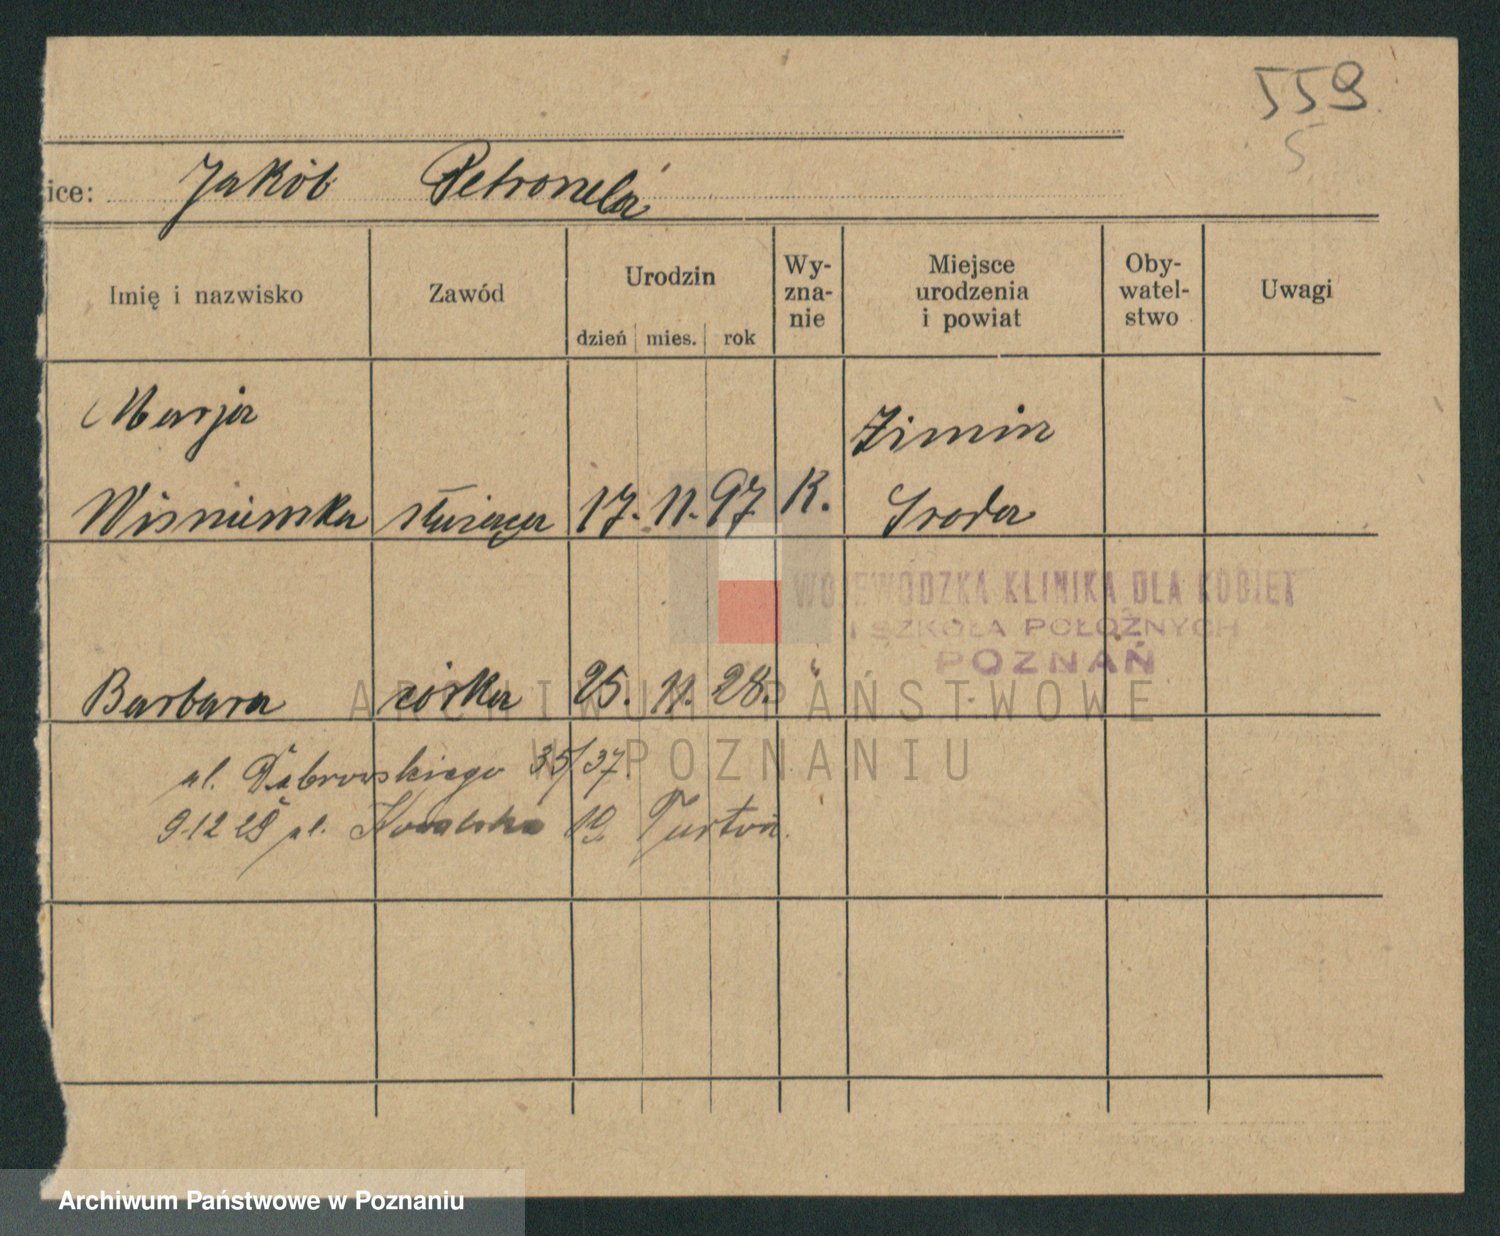 559
5
ice: Jakób Petronela
Imię i nazwisko
Zawód
Urodzin
dzień mies. rok
Wy-
zna-
nie
Miejsce
urodzenia
i powiat
Oby-
watel-
stwo
Uwagi
Marja
Zimin
Wisniewska służąca 17. 11. 97 K. Sroda
WOJEWÓDZKA KLINIKA DLA KOBIET
I SZKOŁA POŁOŻNYCH
POZNAŃ
Barbara córka 25. 11. 28. "
ARCHIWUM PAŃSTWOWE
W POZNANIU
ul. Dąbrowskiego 35/37
9.12 28 ul. 10
Archiwum Państwowe w Poznaniu